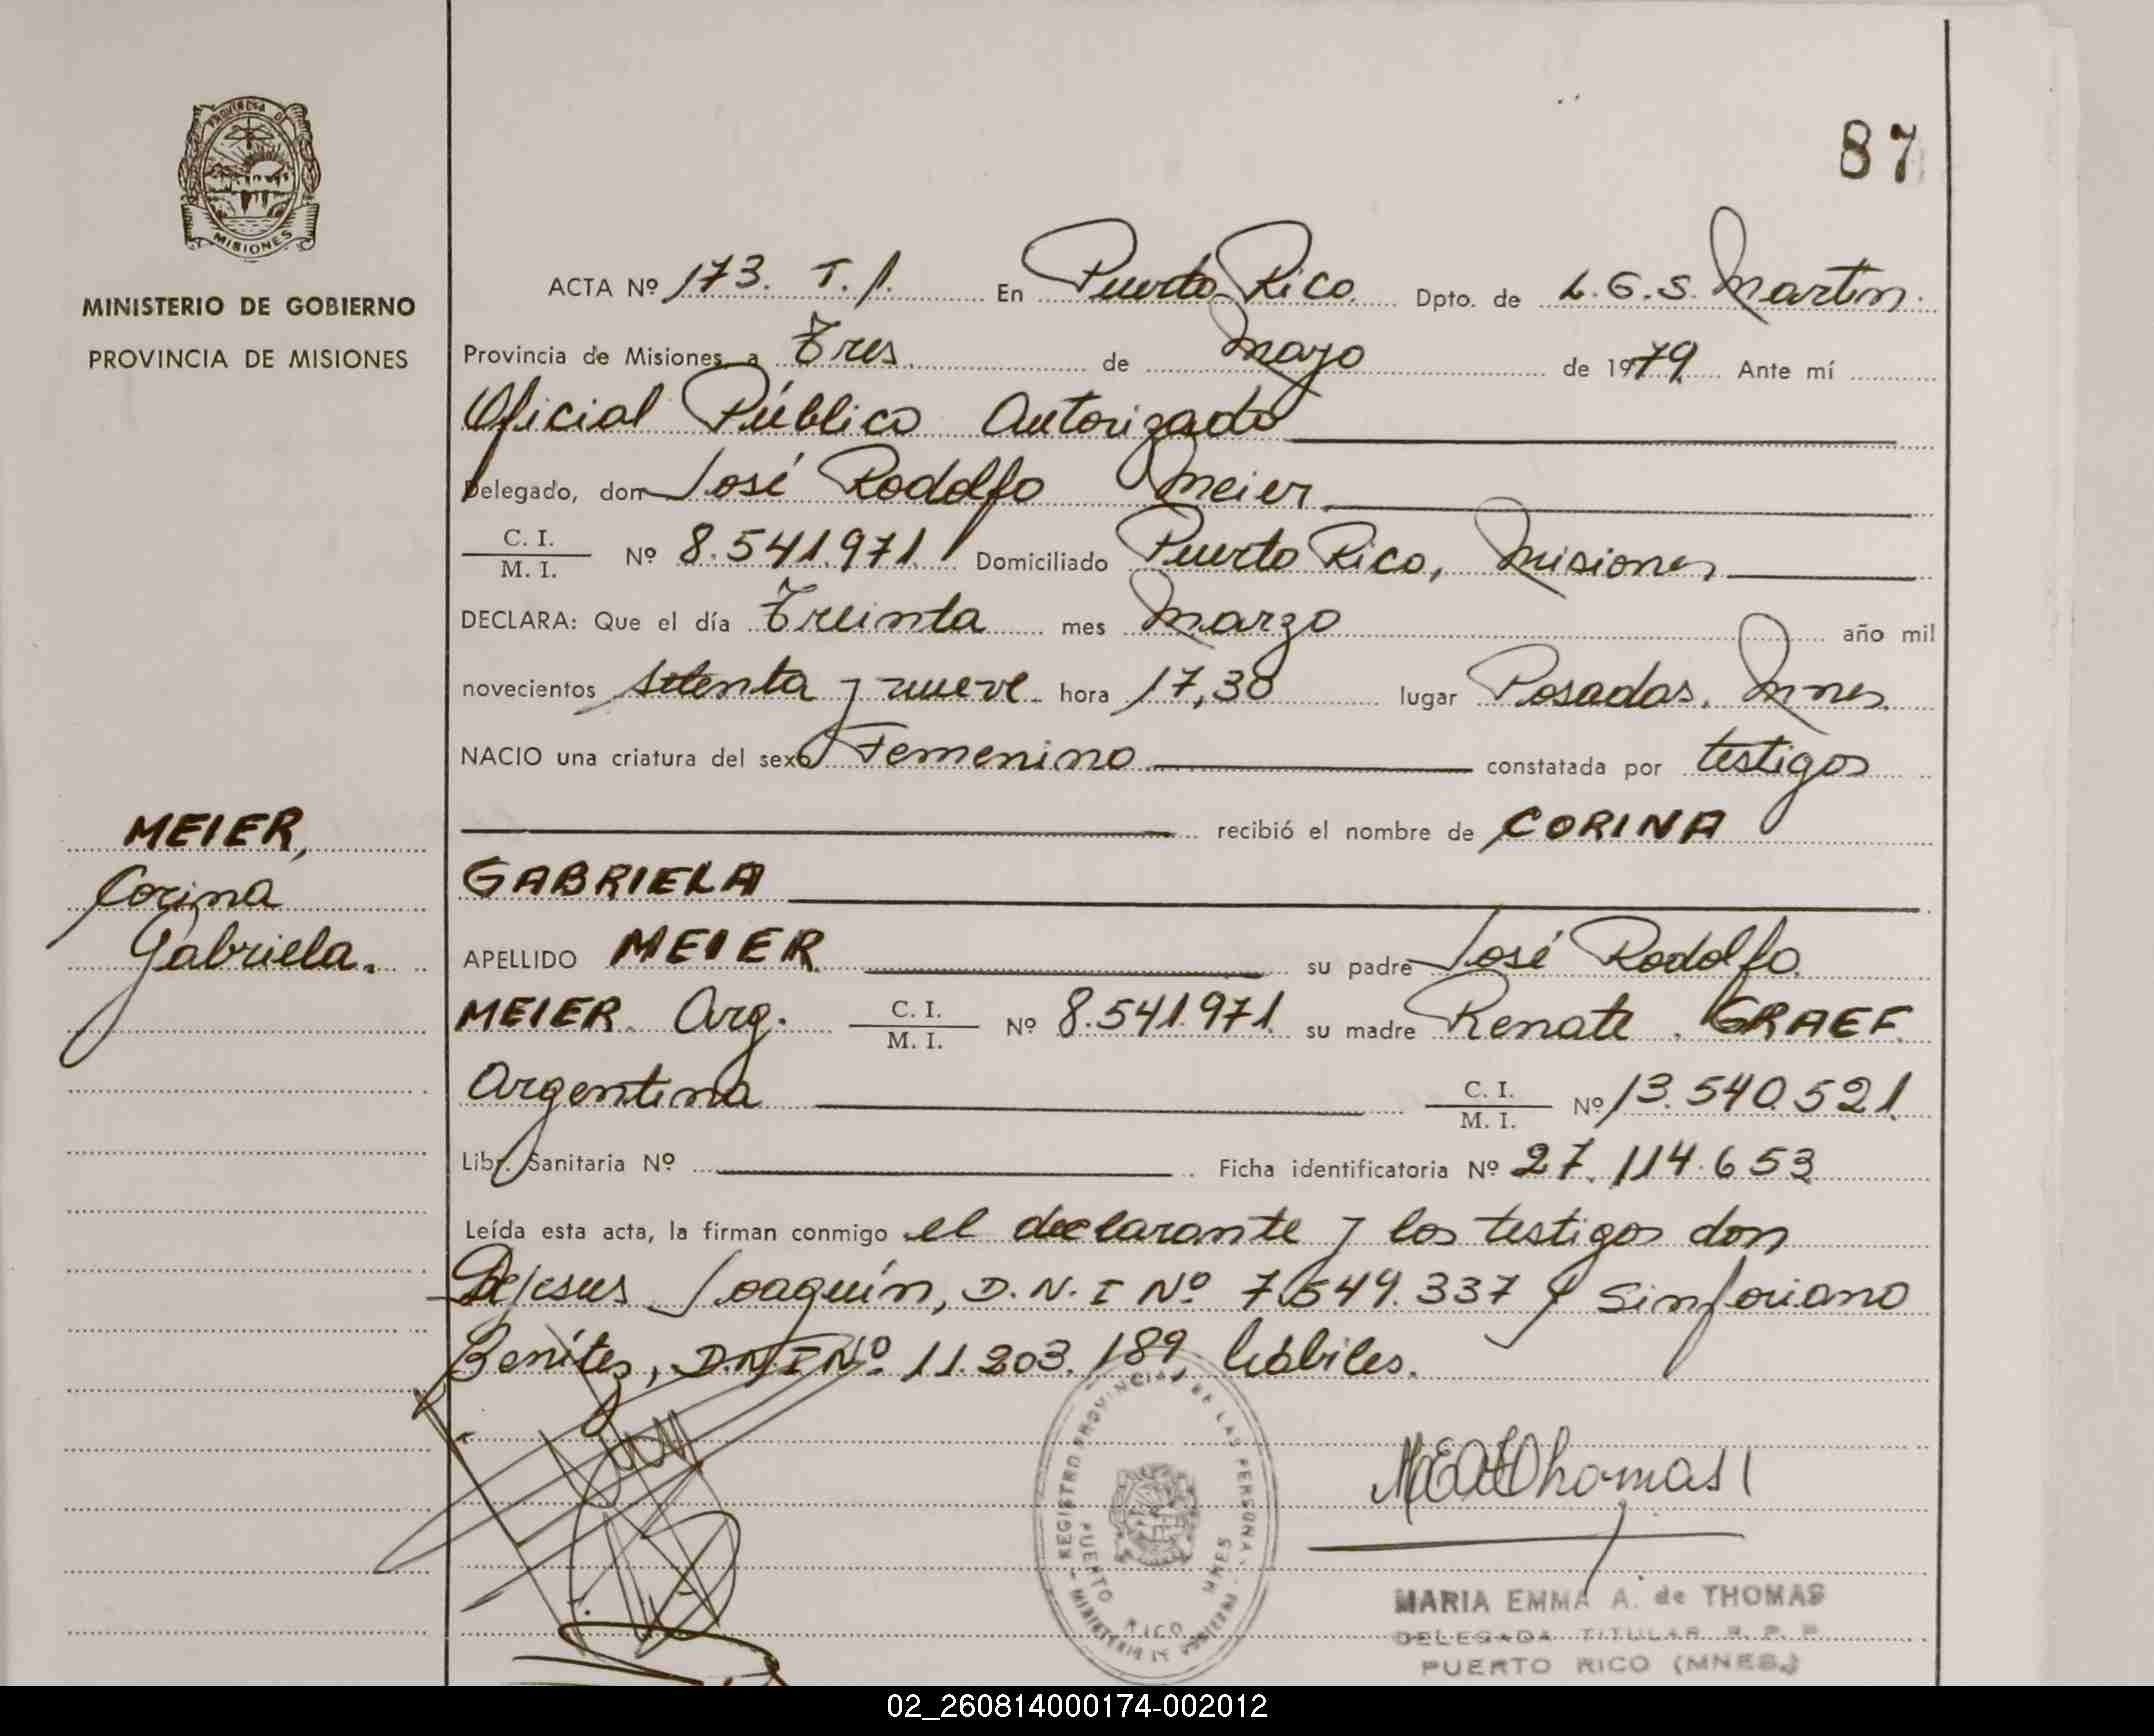 87
PROVINCIA DE
MISIONES
MINISTERIO DE GOBIERNO
PROVINCIA DE MISIONES
ACTA Nº 173. T. 1. En Puerto Rico. Dpto. de L.G.S. Martin.
Provincia de Misiones a Tres de Mayo de 1979. Ante mí
Oficial Público Autorizado
Delegado, don José Rodolfo Meier
C. I.
M. I. Nº 8.541.971. Domiciliado Puerto Rico, Misiones
DECLARA: Que el día Treinta mes Marzo año mil
novecientos setenta y nueve. hora 17,30 lugar Posadas. Mnes.
NACIO una criatura del sexo Femenino constatada por testigos
recibió el nombre de CORINA
GABRIELA
MEIER,
Corina
Gabriela.
APELLIDO MEIER su padre José Rodolfo
MEIER. Arg. C. I.
M. I. Nº 8.541.971. su madre Renate. GRAEF.
Argentina C. I.
M. I. Nº 13.540.521.
Libr. Sanitaria Nº Ficha identificatoria Nº 27.114.653
Leída esta acta, la firman conmigo el declarante y los testigos don
Dejesus Joaquín, D.N.I Nº 7.549.337 y Sinforiano
Benítes, D.N.I Nº 11.203.189, hábiles.
REGISTRO PROVINCIAL DE LAS PERSONAS
MINISTERIO DE GOBIERNO
PUERTO RICO MNES
M E A de Thomas
MARIA EMMA A. de THOMAS
DELEGADA TITULAR R. P. P.
PUERTO RICO (MNES.)
02_260814000174-002012